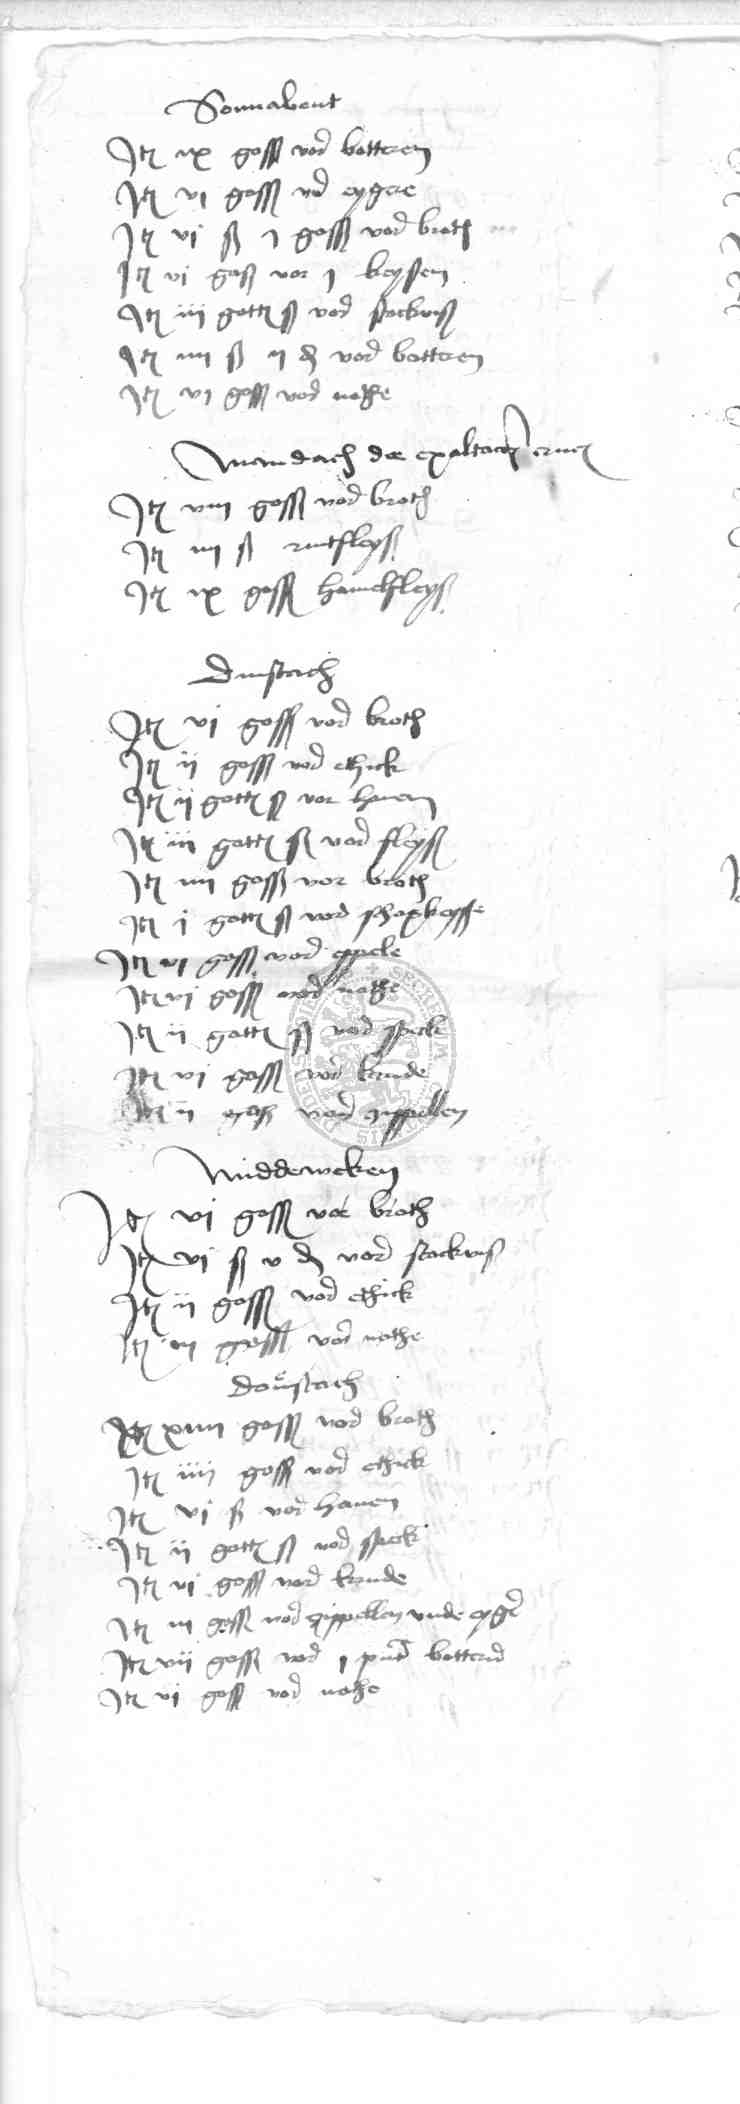 Sonnabent
Itē ix goss vor botteren
Itē vi goss vor eygere
Itē vi ß i goss vor broth
Itē vi goß vor i keysen
Itē iii gotē ß vor stockviß
Itē iiii ß ii d vor botteren
Itē vi goss vor nothe
Mandach exaltacōis crucē
Itē viii goss vor broth
Itē iii ß rintfleyß
Itē ix goss hamelfleyß
Dinstach
Itē vi goss vor broth
Itē ii goss vor ethick
Itē ii gotē ß vor haven
Itē iii gotē ß vor fleyß
Itē iiii goss vor broth
Itē i gotē ß vor schapkeyse
Itē vi goss vor eppele
Itē vi goss vor nothe
Itē ii gotē ß vor speck
Itē vi goss vor krude
Itē ii goß vor zippellen
Middeweken
Itē vi goss vor broth
Itē vi ß v d vor stockviß
Itē ii goss vor ethick
Itē iii goss vor nothe
Donstach
Itē xiiii goss vor broth
Itē iiii goss vor ethick
Itē vi ß vor haven
Itē ii gotē ß vor speck
Itē vi goss vor krude
Itē iii goss vor zippellen vnde eyger
Itē vii goss vor i punt botteren
Itē vi goss vor nothe
SECRETUM